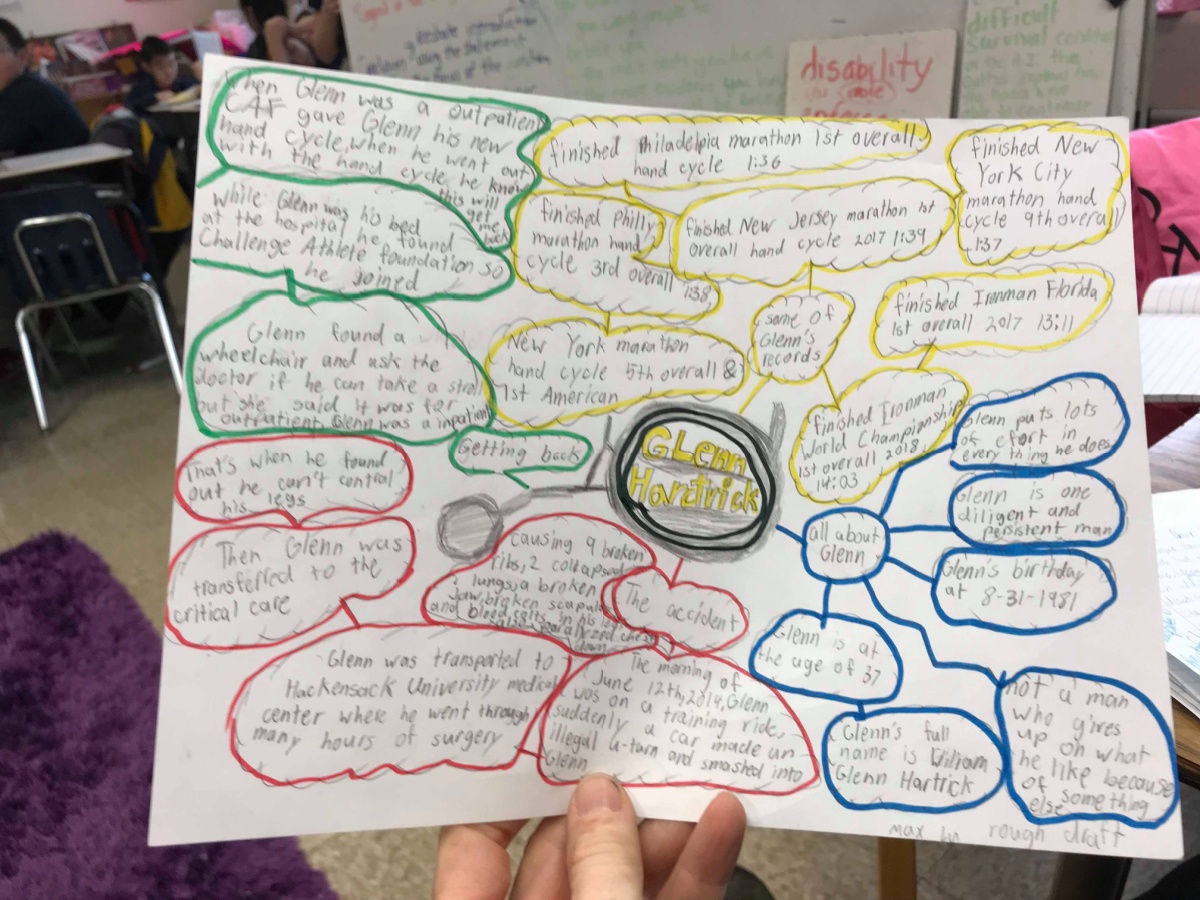 disability
difficult
survival
When Glenn was a outpatient
CAF gave Glenn his new
hand cycle, when he went out
with the hand cycle he know
this will
get
me
back
while Glenn was his bed
at the hospital he found
Challenge Athlete foundation so
he joined
Glenn found a
wheelchair and ask the
doctor if he can take a stroll
but she said it was for
outpatient, Glenn was a inpatient
Getting back
finished Philadelpia marathon 1st overall
hand cycle 1:36
finished Philly
marathon hand
cycle 3rd overall
1:38
finished New Jersey marathon 1st
overall hand cycle 2017 1:39
finished New
York City
marathon hand
cycle 9th overall
1:37
New York marathon
hand cycle 5th overall &
1st American
some of
Glenn's
records
finished Ironman Florida
1st overall 2017 13:11
finished Ironman
World Championship
1st overall 2018
14:03
GLenn
Hartrick
That's when he found
out he can't control
his legs
Then Glenn was
transferred to the
critical care
causing 9 broken
ribs, 2 collapsed
lungs, a broken
jaw, broken scapula
and blood clots in his legs
also paralyzed chest
down
The accident
Glenn was transported to
Hackensack University medical
center where he went through
many hours of surgery
The morning of
June 12th, 2014, Glenn
was on a training ride,
suddenly a car made an
illegal u-turn and smashed into
Glenn
all about
Glenn
Glenn puts lots
of efort in
every thing he does
Glenn is one
diligent and
persistent man
Glenn's birthday
at 8-31-1981
Glenn is at
the age of 37
Glenn's full
name is William
Glenn Hartrick
not a man
who gives
up on what
he like because
of something
else
max rough draft